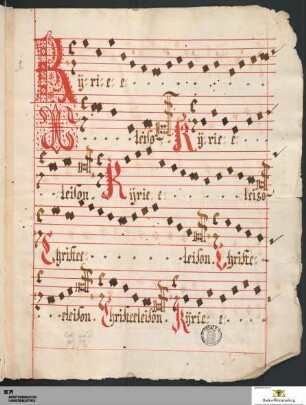 Kÿ: ri: e: e
leiso Kÿ: rie: e
leison Kÿrie: e leiso
Christee: leison Christe:
eleison Christeeleison Kÿrie: e
WÜRTTEMBERGISCHE
LANDESBIBLIOTHEK
Baden-Württemberg